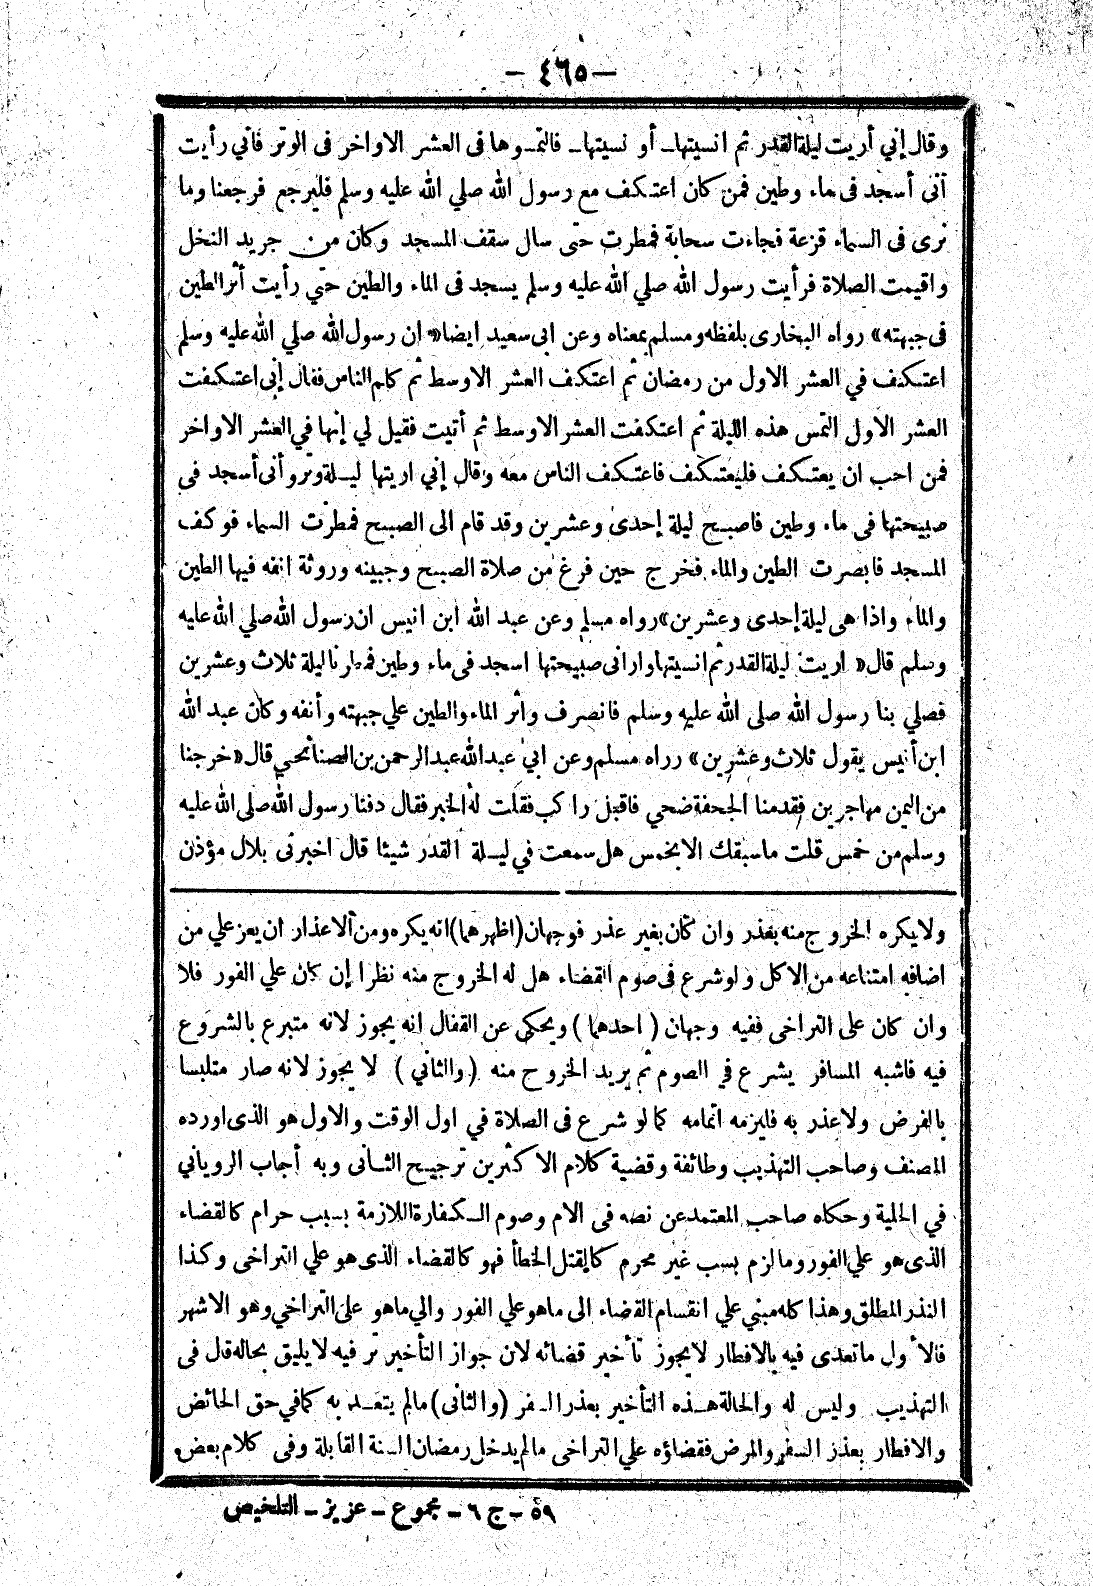 — ٤٦٥ —
وقال إني أريت ليلة القدر ثم انسيتها ـ أو نسيتها ـ فالتمسوها فى العشر الاواخر فى الوتر فأني رأيت
أنى أسجد فى ماء وطين فمن كان اعتكف مع رسول الله صلي الله عليه وسلم فليرجع فرجعنا وما
نرى فى السماء قزعة فجاءت سحابة فمطرت حتى سال سقف المسجد وكان من جريد النخل
واقيمت الصلاة فرأيت رسول الله صلي الله عليه وسلم يسجد فى الماء والطين حتي رأيت أثر الطين
فى جبهته» رواه البخارى بلفظه ومسلم بمعناه وعن ابى سعيد ايضا «ان رسول الله صلي الله عليه وسلم
اعتكف في العشر الاول من رمضان ثم اعتكف العشر الاوسط ثم كلم الناس فقال إنى اعتكفت
العشر الاول التمس هذه الليلة ثم اعتكفت العشر الاوسط ثم أتيت فقيل لي إنها في العشر الاواخر
فمن احب ان يعتكف فليعتكف فاعتكف الناس معه وقال إني اريتها ليلة وتر وأنى أسجد فى
صبيحتها فى ماء وطين فاصبح ليلة إحدى وعشرين وقد قام الى الصبح فمطرت السماء فوكف
المسجد فابصرت الطين والماء فخرج حين فرغ من صلاة الصبح وجبينه وروثة انفه فيها الطين
والماء واذا هى ليلة إحدى وعشرين» رواه مسلم وعن عبد الله ابن انيس ان رسول الله صلي الله عليه
وسلم قال «اريت ليلة القدر ثم انسيتها وارانى صبيحتها اسجد فى ماء وطين فمطرنا ليلة ثلاث وعشرين
فصلي بنا رسول الله صلى الله عليه وسلم فانصرف وأثر الماء والطين علي جبهته وأنفه وكان عبد الله
ابن أنيس يقول ثلاث وعشرين» رراه مسلم وعن ابي عبد الله عبد الرحمن بن الصنابحي قال «خرجنا
من اليمن مهاجرين فقدمنا الجحفة ضحي فاقبل راكب فقلت له الخبر فقال دفنا رسول الله صلى الله عليه
وسلم من خمس قلت ما سبقك الا بخمس هل سمعت في ليلة القدر شيئا قال اخبرنى بلال مؤذن
ولا يكره الخروج منه بعذر وان كان بغير عذر فوجهان (اظهرهما) انه يكره ومن الاعذار ان يعز علي من
اضافه امتناعه من الاكل ولو شرع فى صوم القضاء هل له الخروج منه نظرا إن كان علي الفور فلا
وان كان على التراخى ففيه وجهان (احدهما) ويحكى عن القفال انه يجوز لانه متبرع بالشروع
فيه فاشبه المسافر يشرع في الصوم ثم يريد الخروج منه (والثاني) لا يجوز لانه صار متلبسا
بالفرض ولا عذر به فليزمه اتمامه كما لو شرع فى الصلاة في اول الوقت والاول هو الذى اورده
المصنف وصاحب التهذيب وطائفة وقضية كلام الاكثرين ترجيح الثانى وبه أجاب الروياني
في الحلية وحكاه صاحب المعتمد عن نصه فى الام وصوم الكفارة اللازمة بسبب حرام كالقضاء
الذى هو علي الفور وما لزم بسب غير محرم كالقتل الخطأ فهو كالقضاء الذى هو علي التراخى وكذا
النذر المطلق وهذا كله مبني علي انقسام القضاء الى ما هو علي الفور والي ما هو على التراخي وهو الاشهر
فالأول ما تعدى فيه بالافطار لا يجوز تأخير قضائه لان جواز التأخير تر فيه لا يليق بحاله قال فى
التهذيب وليس له والحالة هذه التأخير بعذر السفر (والثانى) ما لم يتعد به كما في حق الحائض
والافطار بعذر السفر والمرض فقضاؤه علي التراخى ما لم يدخل رمضان السنة القابلة وفى كلام بعض
٥٩ ـ ج ٦ ـ مجموع ـ عزيز ـ التلخيص